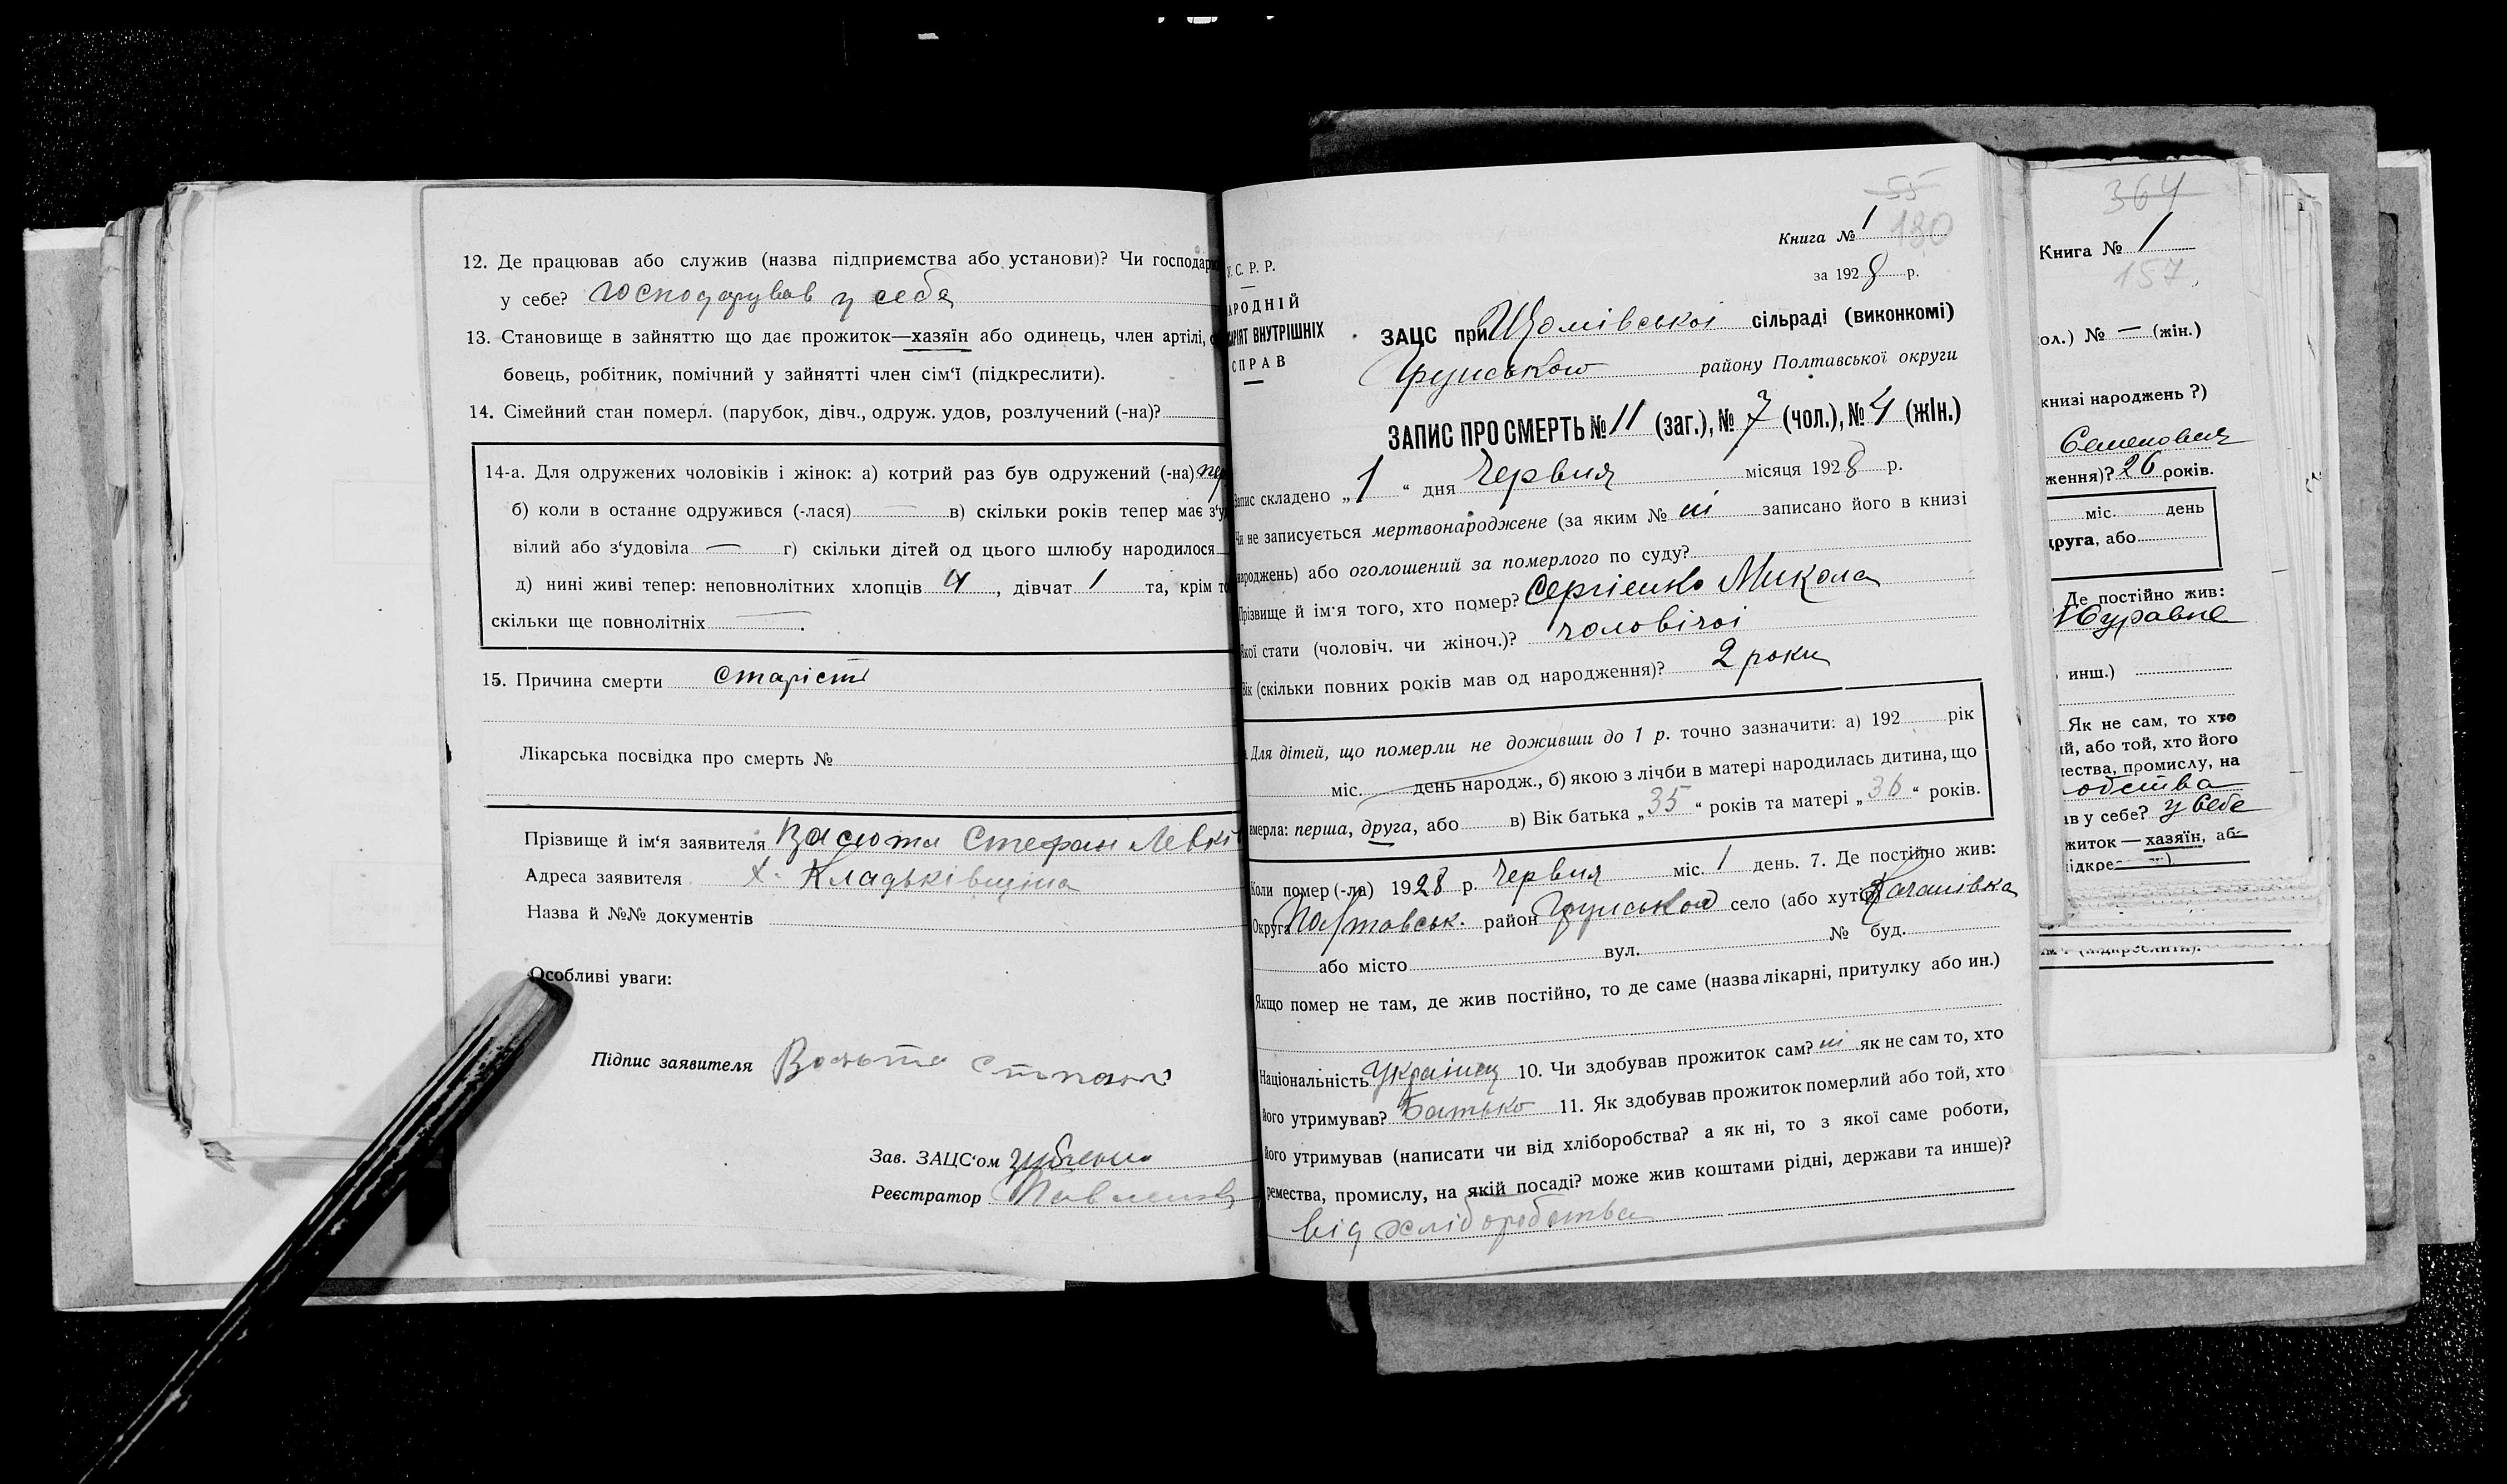 12. Де працював або служив (назва підприємства або установи)? Чи господар
у себе? господарував у себе
13. Становище в зайняттю що дає прожиток—хазяїн або одинець, член артілі,
бовець, робітник, помічний у зайнятті член сім'ї (підкреслити).
14. Сімейний стан померл. (парубок, дівч., одруж. удов, розлучений (-на)?
14-а. Для одружених чоловіків і жінок: а) котрий раз був одружений (-на) пер
б) коли в останнє одружився (-лася) — в) скільки років тепер має з'у
вілий або з'удовіла — г) скільки дітей од цього шлюбу народилося
д) нині живі тепер: неповнолітних хлопців 4, дівчат 1 та, крім то
скільки ще повнолітніх — .
15. Причина смерти старість
Лікарська посвідка про смерть №
Прізвище й ім'я заявителя Васюта Стефан Левкі
Адреса заявителя х. Кладьківщина
Назва й №№ документів
Особливі уваги:
Підпис заявителя Васюта
Зав. ЗАЦС'ом
Реєстратор
55
180
Книга № 1
за 1928 р.
У. С. Р. Р.
АРОДНІЙ
АРІЯТ ВНУТРІШНІХ
СПРАВ
ЗАЦС при сільраді (виконкомі)
Грунськом району Полтавської округи
ЗАПИС ПРО СМЕРТЬ № 11 (заг.), № 7 (чол.), № 4 (жін.)
Запис складено „1“ дня Червня місяця 1928 р.
Чи не записується мертвонароджене (за яким № ні записано його в книзі
народжень) або оголошений за померлого по суду?
Прізвище й ім'я того, хто помер? Сергієнко Микола
Якої стати (чоловіч. чи жіноч.)? чоловічої
Вік (скільки повних років мав од народження)? 2 роки
Для дітей, що померли не доживши до 1 р. точно зазначити: а) 192 рік
міс. день народж., б) якою з лічби в матері народилась дитина, що
вмерла: перша, друга, або в) Вік батька „35“ років та матері „36“ років.
Коли помер (-ла) 1928 р. Червня міс. 1 день. 7. Де постійно жив:
Округа Полтавськ. район Грунськом село (або хутір) Качанівка
або місто вул. № буд.
Якщо помер не там, де жив постійно, то де саме (назва лікарні, притулку або ин.)
Національність Українец 10. Чи здобував прожиток сам? ні як не сам то, хто
його утримував? Батько 11. Як здобував прожиток померлий або той, хто
його утримував (написати чи від хліборобства? а як ні, то з якої саме роботи,
ремества, промислу, на якій посаді? може жив коштами рідні, держави та инше)?
від хліборобства
364
Книга № 1
157
ол.) № — (жін.)
книзі народжень ?)
Семенович
ження)? 26 років.
міс. день
друга, або
Де постійно жив:
Журавне
инш.)
Як не сам, то хто
ий, або той, хто його
ества, промислу, на
обства
ав у себе? у себе
житок — хазяїн, аб